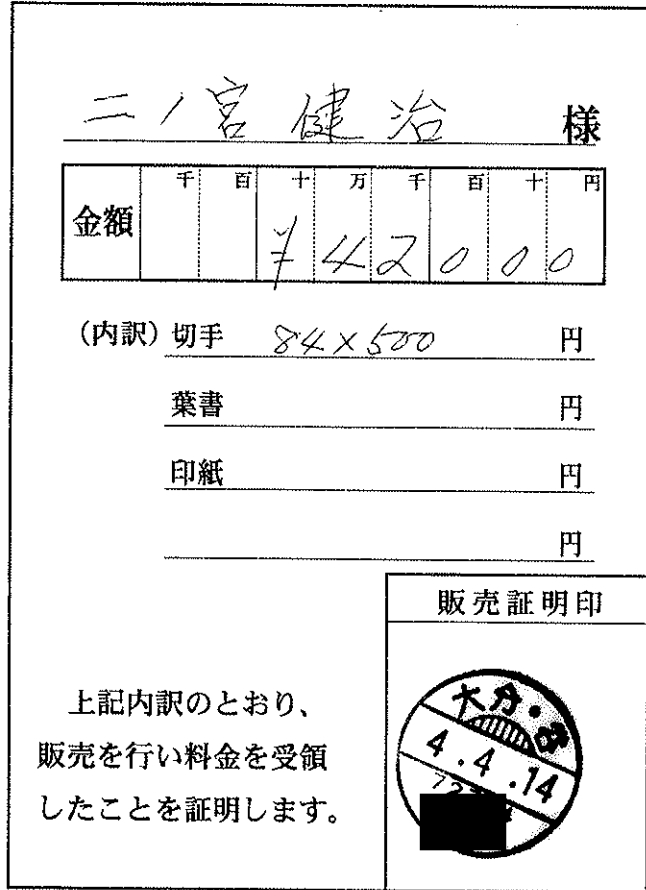 二ノ宮健治 様
千 百 十 万 千 百 十 円
金額 ¥42000
(内訳) 切手 84×500 円
葉書 円
印紙 円
円
販売証明印
上記内訳のとおり、
販売を行い料金を受領
したことを証明します。
大分・
4.4.14